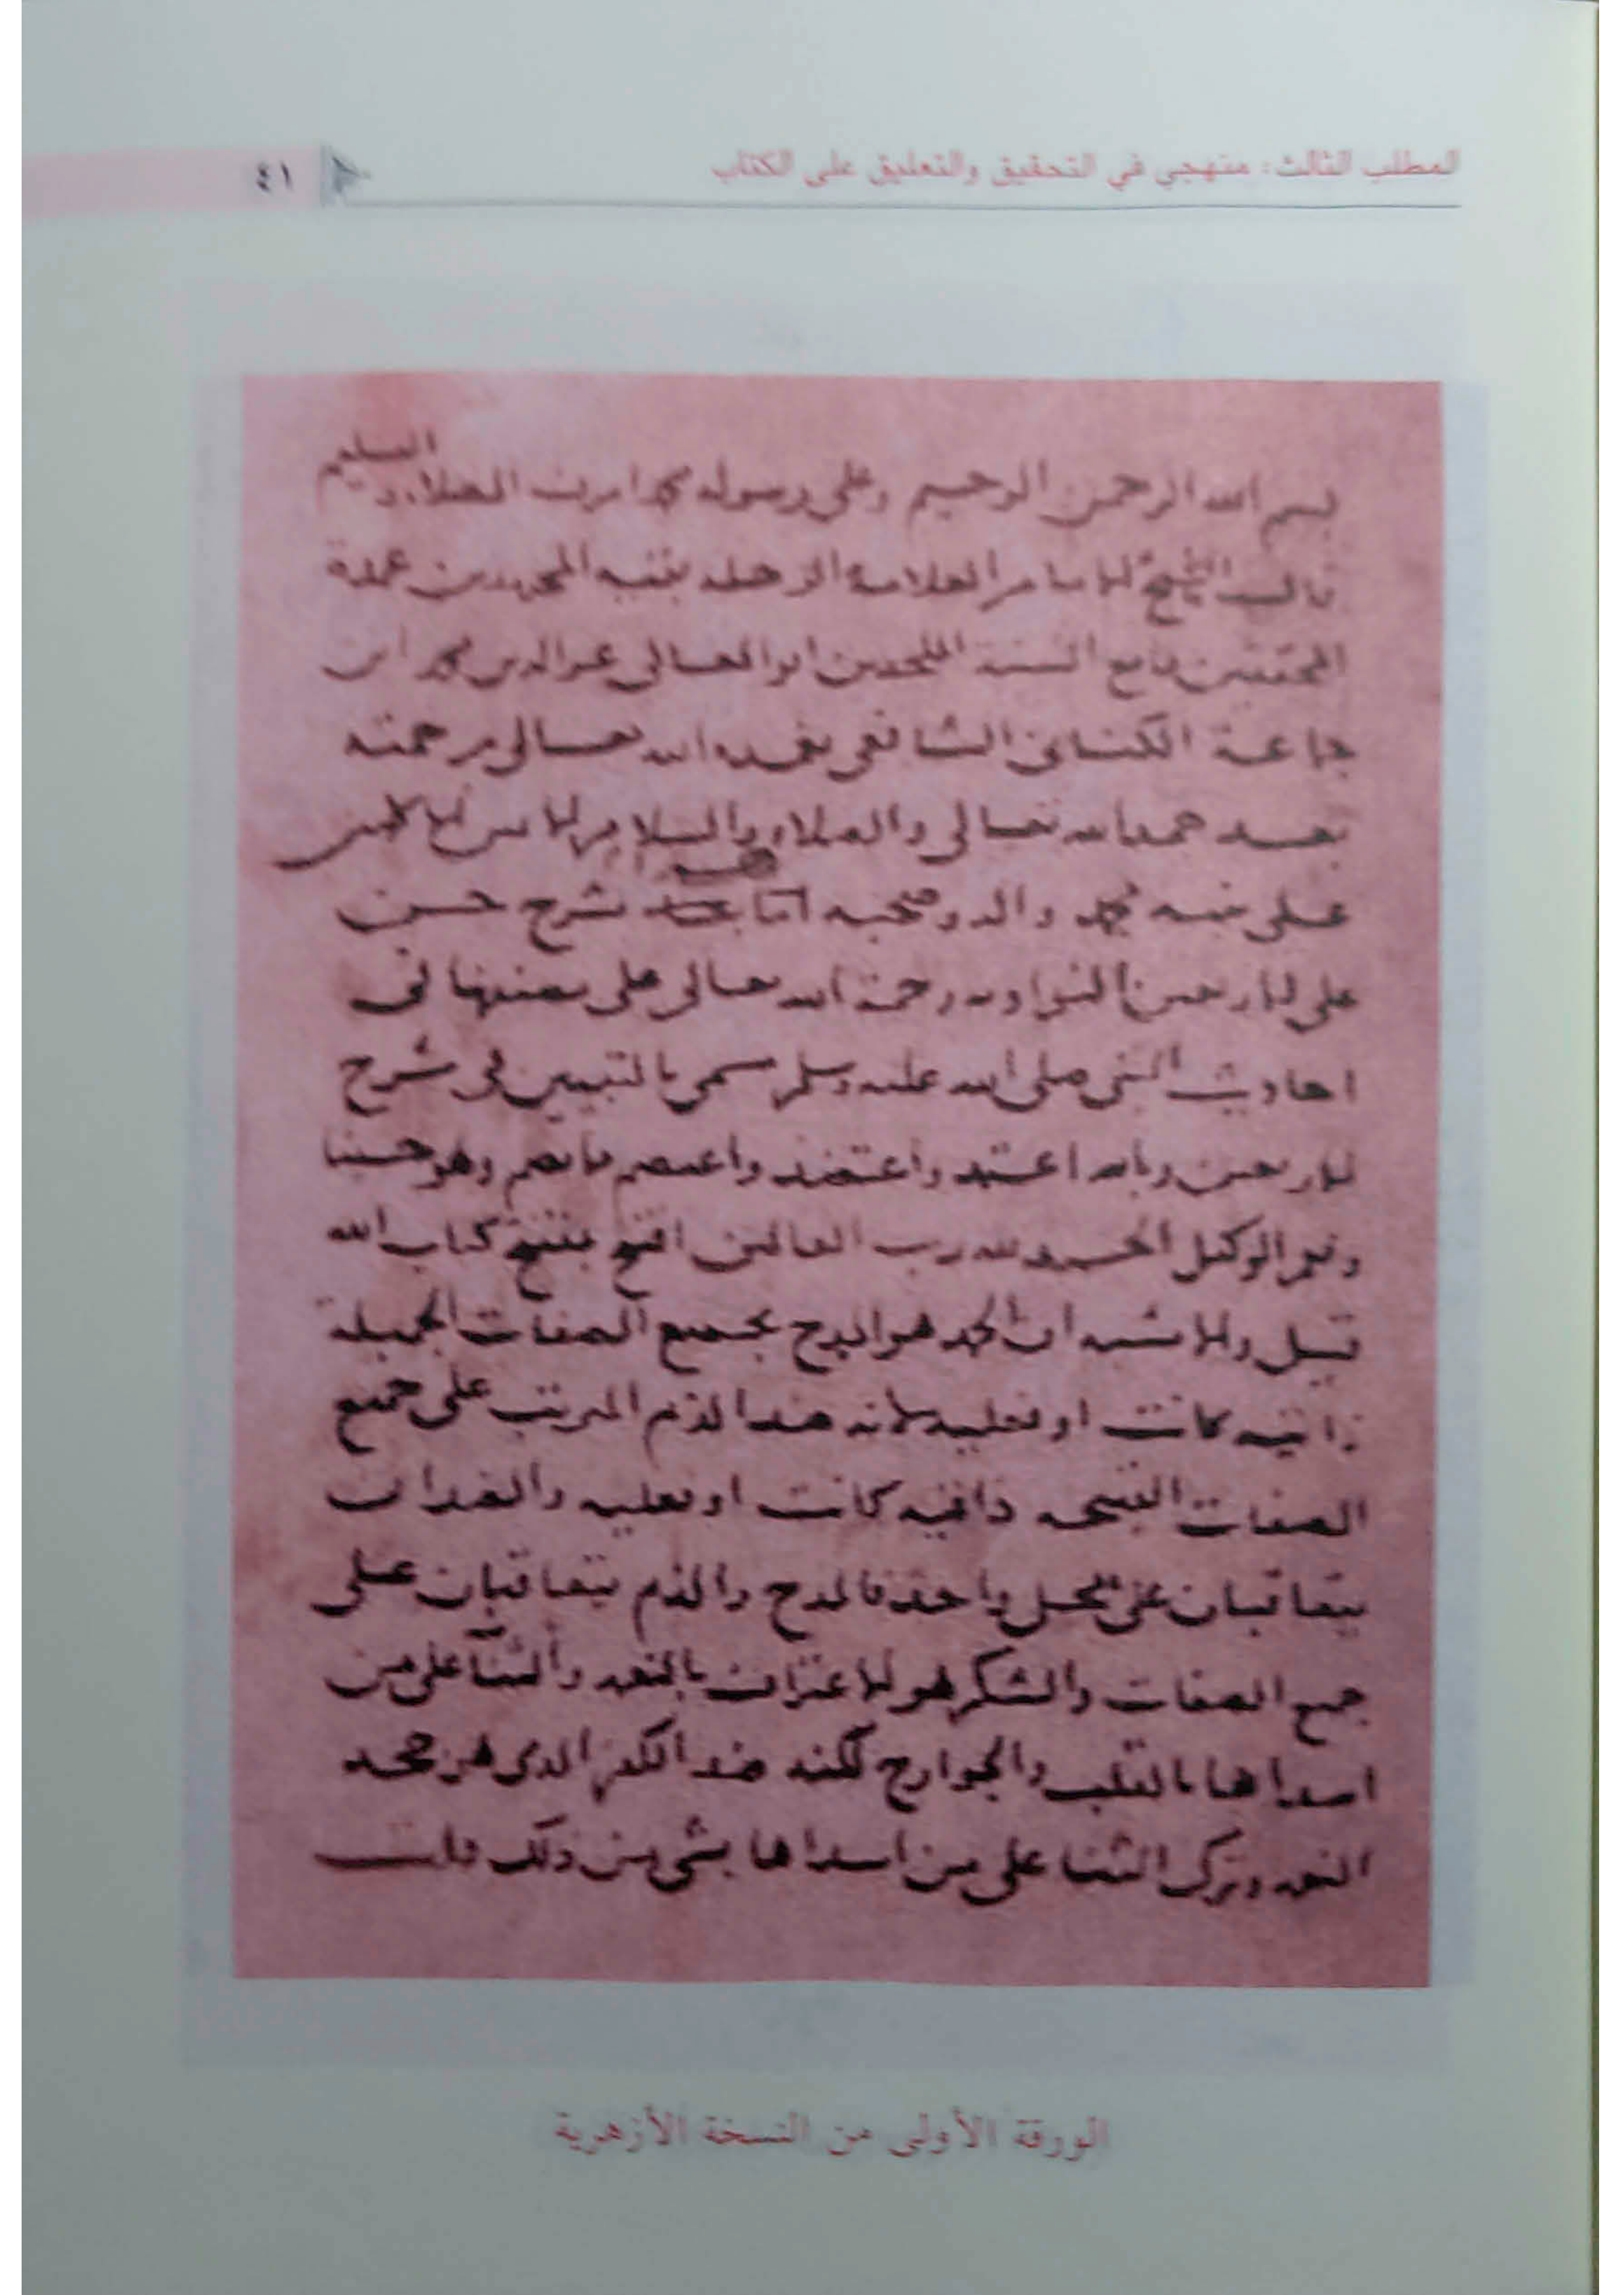 المطلب الثالث: منهجي في التحقيق والتعليق على الكتاب
٤١
بسم الله الرحمن الرحيم وعلى رسوله محمد الصلاه و التسليم
قال الشيخ الامام العلامة الرحله بقيه المجتهدين عمدة
المحققين قامع السنة الملحدين ابو المعالى عز الدين محمد ابن
جماعة الكنانى الشافعى تغمده الله تعالى برحمته
بعد حمد الله تعالى والصلاه والسلام
على نبيه محمد واله وصحبه اما بعد شرح حسن
على الاربعين النواويه رحمة الله تعالى على مصنفها فى
احاديث النبى صلى الله عليه وسلم سمى بالتبيين فى شرح
الاربعين وبالله اعتمد واعتضد واعتصم مما يصم وهو حسبنا
ونعم الوكيل الحمد لله رب العالمين افتتح بمفتتح كتاب الله
قيل والاشبه ان الحمد هو المدح بجميع الصفات الجميلة
ذاتيه كانت او فعليه لانه ضد الذم المرتب على جميع
الصفات القبيحه ذاتيه كانت او فعليه والضدان
يتعاقبان على محل واحد فالمدح والذم يتعاقبان على
جميع الصفات والشكر هو الاعتراف بالنعمه والثنآ على من
اسداها بالقلب والجوارح لكنه ضد الكفر الذى هو جحد
النعمه وترك الثنا على من اسداها بشى من ذلك قلت
الورقة الأولى من النسخة الأزهرية